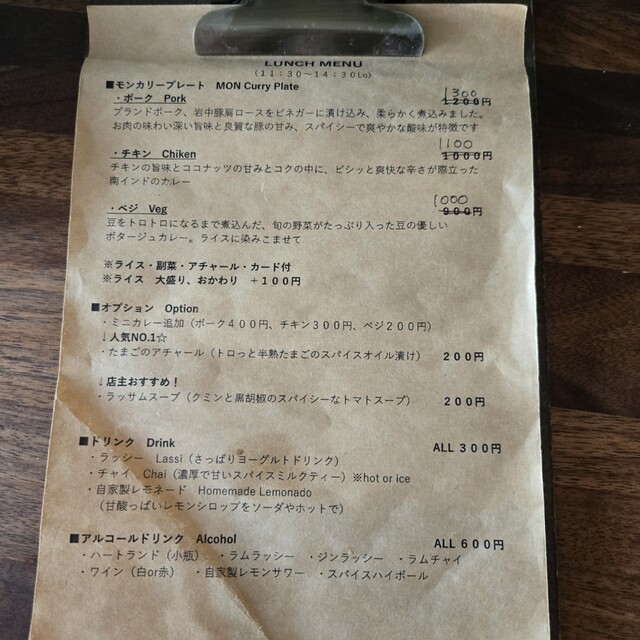 LUNCH MENU
（11：30～14：30Lo）
■モンカリープレート　MON Curry Plate
・ポーク　Pork　1300　1200円
ブランドポーク、岩中豚肩ロースをビネガーに漬け込み、柔らかく煮込みました。
お肉の味わい深い旨味と良質な豚の甘み、スパイシーで爽やかな酸味が特徴です
・チキン　Chiken　1100　1000円
チキンの旨味とココナッツの甘みとコクの中に、ビシッと爽快な辛さが際立った
南インドのカレー
・ベジ　Veg　1000　900円
豆をトロトロになるまで煮込んだ、旬の野菜がたっぷり入った豆の優しい
ポタージュカレー。ライスに染みこませて
※ライス・副菜・アチャール・カード付
※ライス　大盛り、おかわり　＋100円
■オプション　Option
・ミニカレー追加（ポーク400円、チキン300円、ベジ200円）
↓人気NO.1☆
・たまごのアチャール（トロっと半熟たまごのスパイスオイル漬け）　200円
↓店主おすすめ！
・ラッサムスープ（クミンと黒胡椒のスパイシーなトマトスープ）　200円
■ドリンク　Drink　ALL 300円
・ラッシー　Lassi（さっぱりヨーグルトドリンク）
・チャイ　Chai（濃厚で甘いスパイスミルクティー）※hot or ice
・自家製レモネード　Homemade Lemonado
（甘酸っぱいレモンシロップをソーダやホットで）
■アルコールドリンク　Alcohol　ALL 600円
・ハートランド（小瓶）　・ラムラッシー　・ジンラッシー　・ラムチャイ
・ワイン（白or赤）　・自家製レモンサワー　・スパイスハイボール